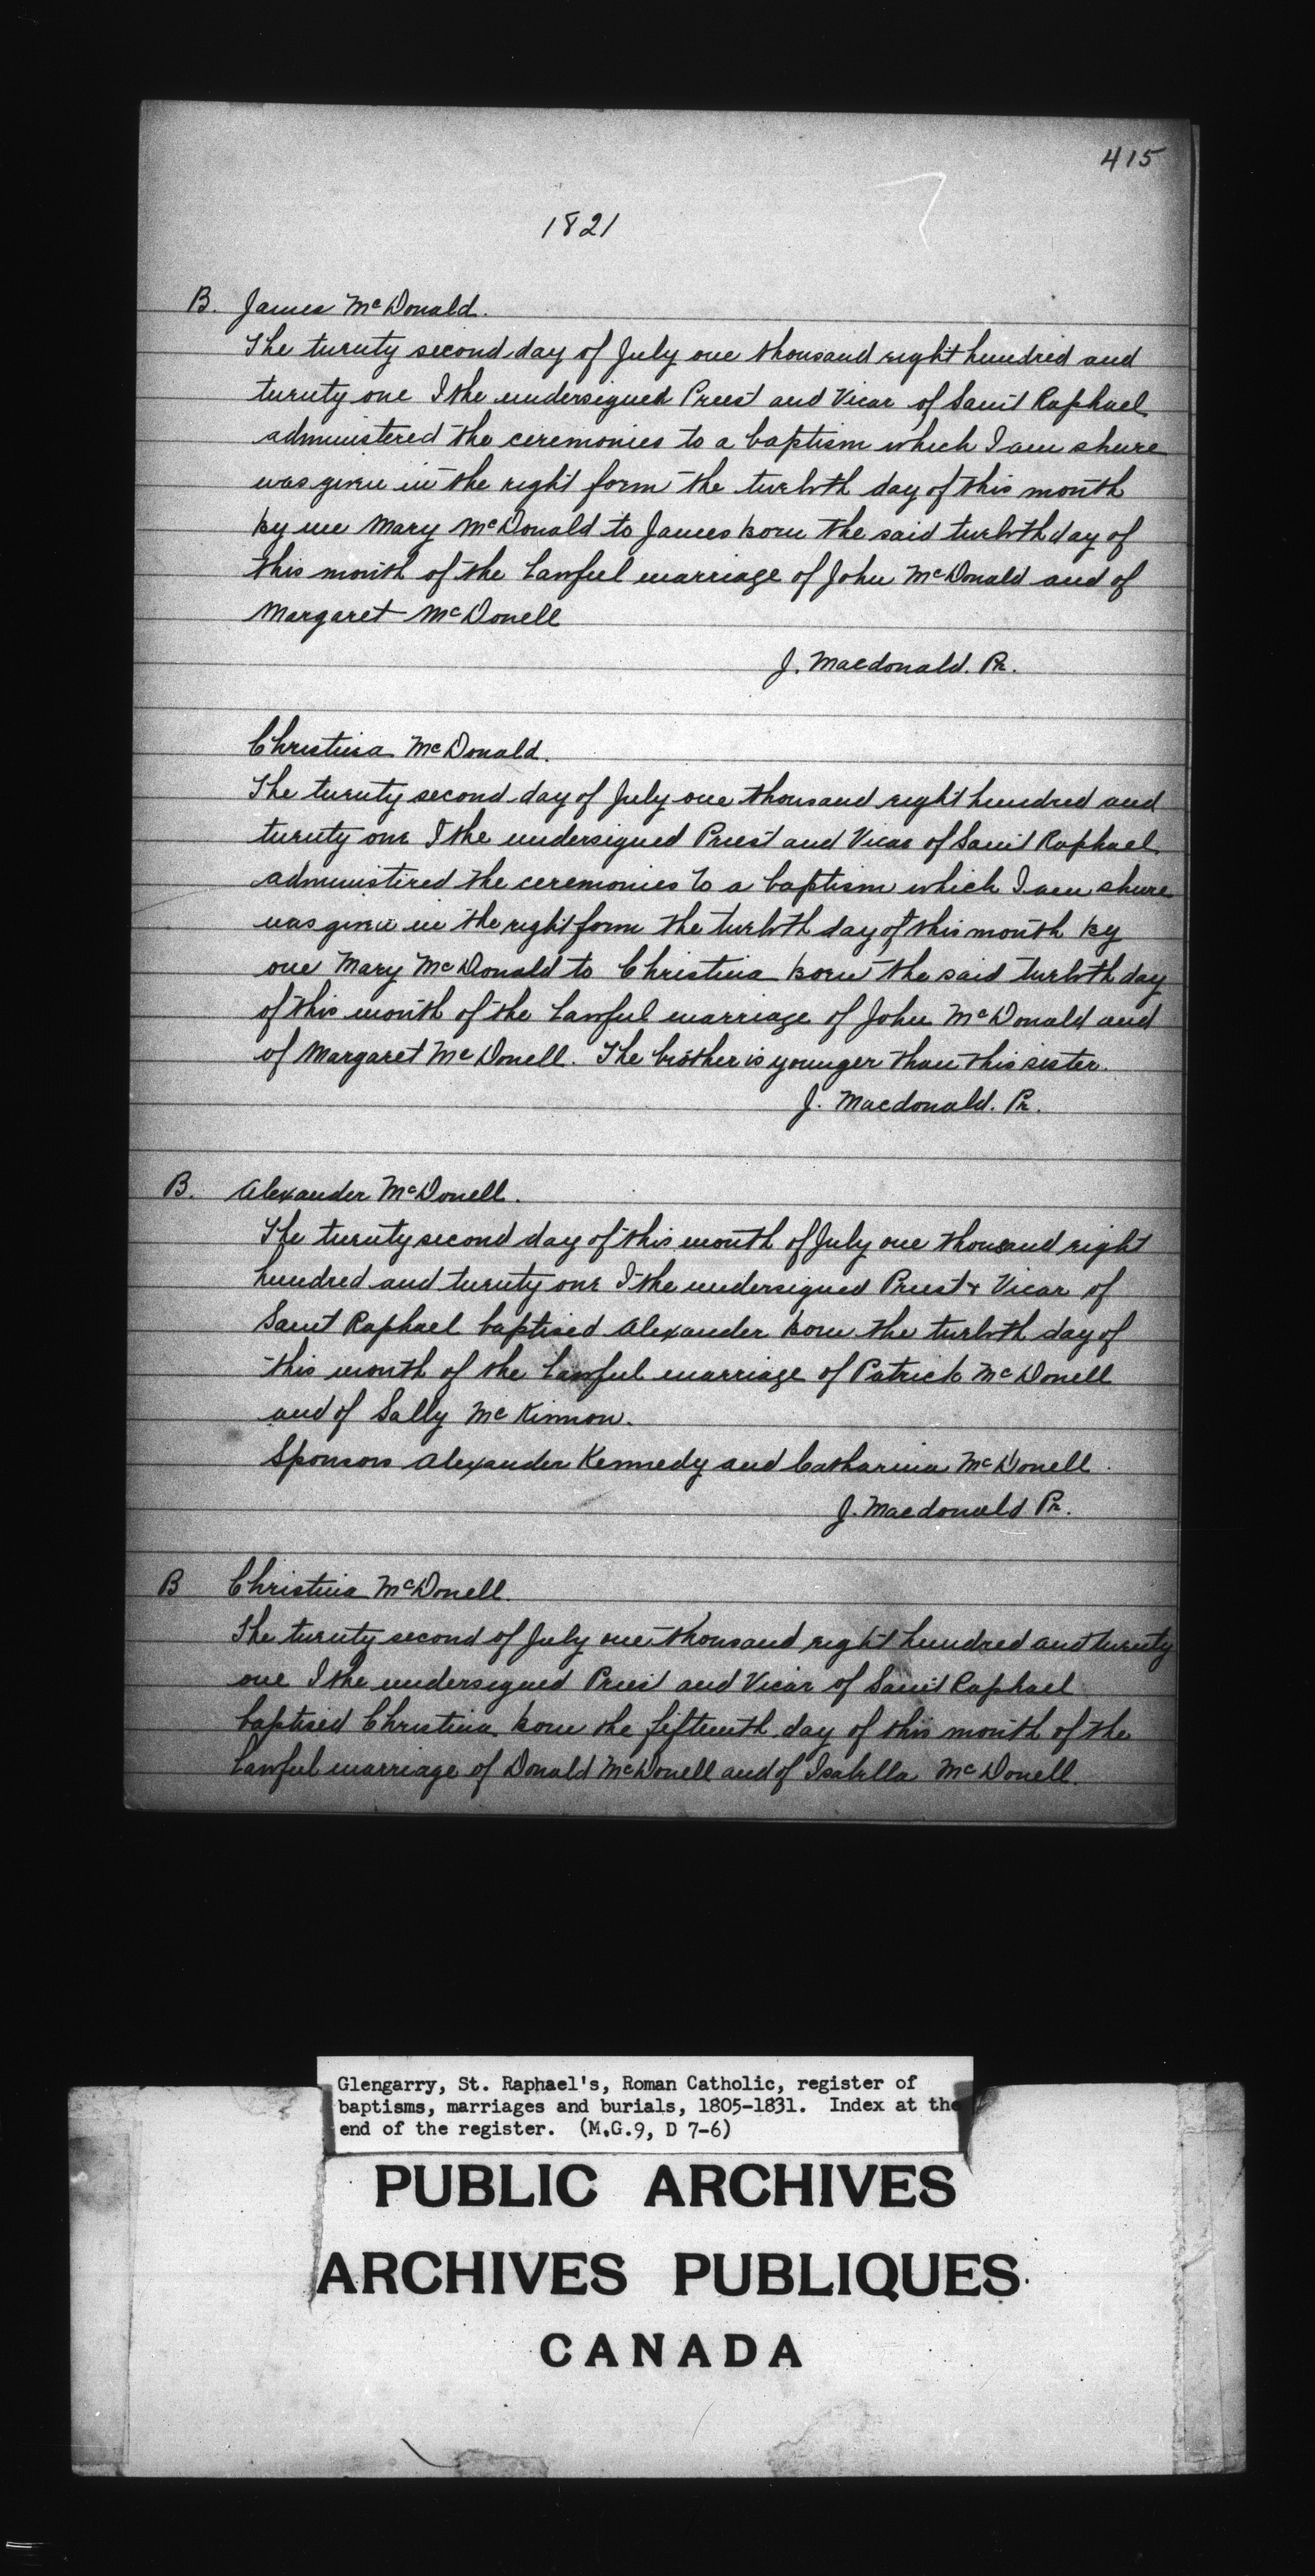 415
1821
B. James McDonald.
The twenty second day of July one thousand eight hundred and
twenty one I the undersigned Priest and Vicar of Saint Raphael
administered the ceremonies to a baptism which I am shure
was given in the right form the twelvth day of this month
by me Mary McDonald to James born the said twelvth day of
this month of the lawful marriage of John McDonald and of
Margaret McDonell
J. Macdonald. Pr.
Christina McDonald.
The twenty second day of July one thousand eight hundred and
twenty one I the undersigned Priest and Vicar of Saint Raphael
administired the ceremonies to a baptism which I am shure
was given in the right form the twelvth day of this month by
one Mary McDonald to Christina born the said twelvth day
of this month of the lawful marriage of John McDonald and
of Margaret McDonell. The brother is younger than this sister.
J. Macdonald. Pr.
B. Alexander McDonell.
The twenty second day of this month of July one thousand eight
hundred and twenty one I the undersigned Priest & Vicar of
Saint Raphael baptised Alexander born the twelvth day of
this month of the lawful marriage of Patrick McDonell
and of Sally McKinnon.
Sponsors Alexander Kennedy and Catharina McDonell.
J. Macdonald Pr.
B Christina McDonell.
The twenty second of July one thousand eight hundred and twenty
one I the undersigned Priest and Vicar of Saint Raphael
baptised Christina born the fifteenth day of this month of the
lawful marriage of Donald McDonell and of Isabella McDonell.
Glengarry, St. Raphael's, Roman Catholic, register of
baptisms, marriages and burials, 1805-1831. Index at the
end of the register. (M.G.9, D 7-6)
PUBLIC ARCHIVES
ARCHIVES PUBLIQUES
CANADA